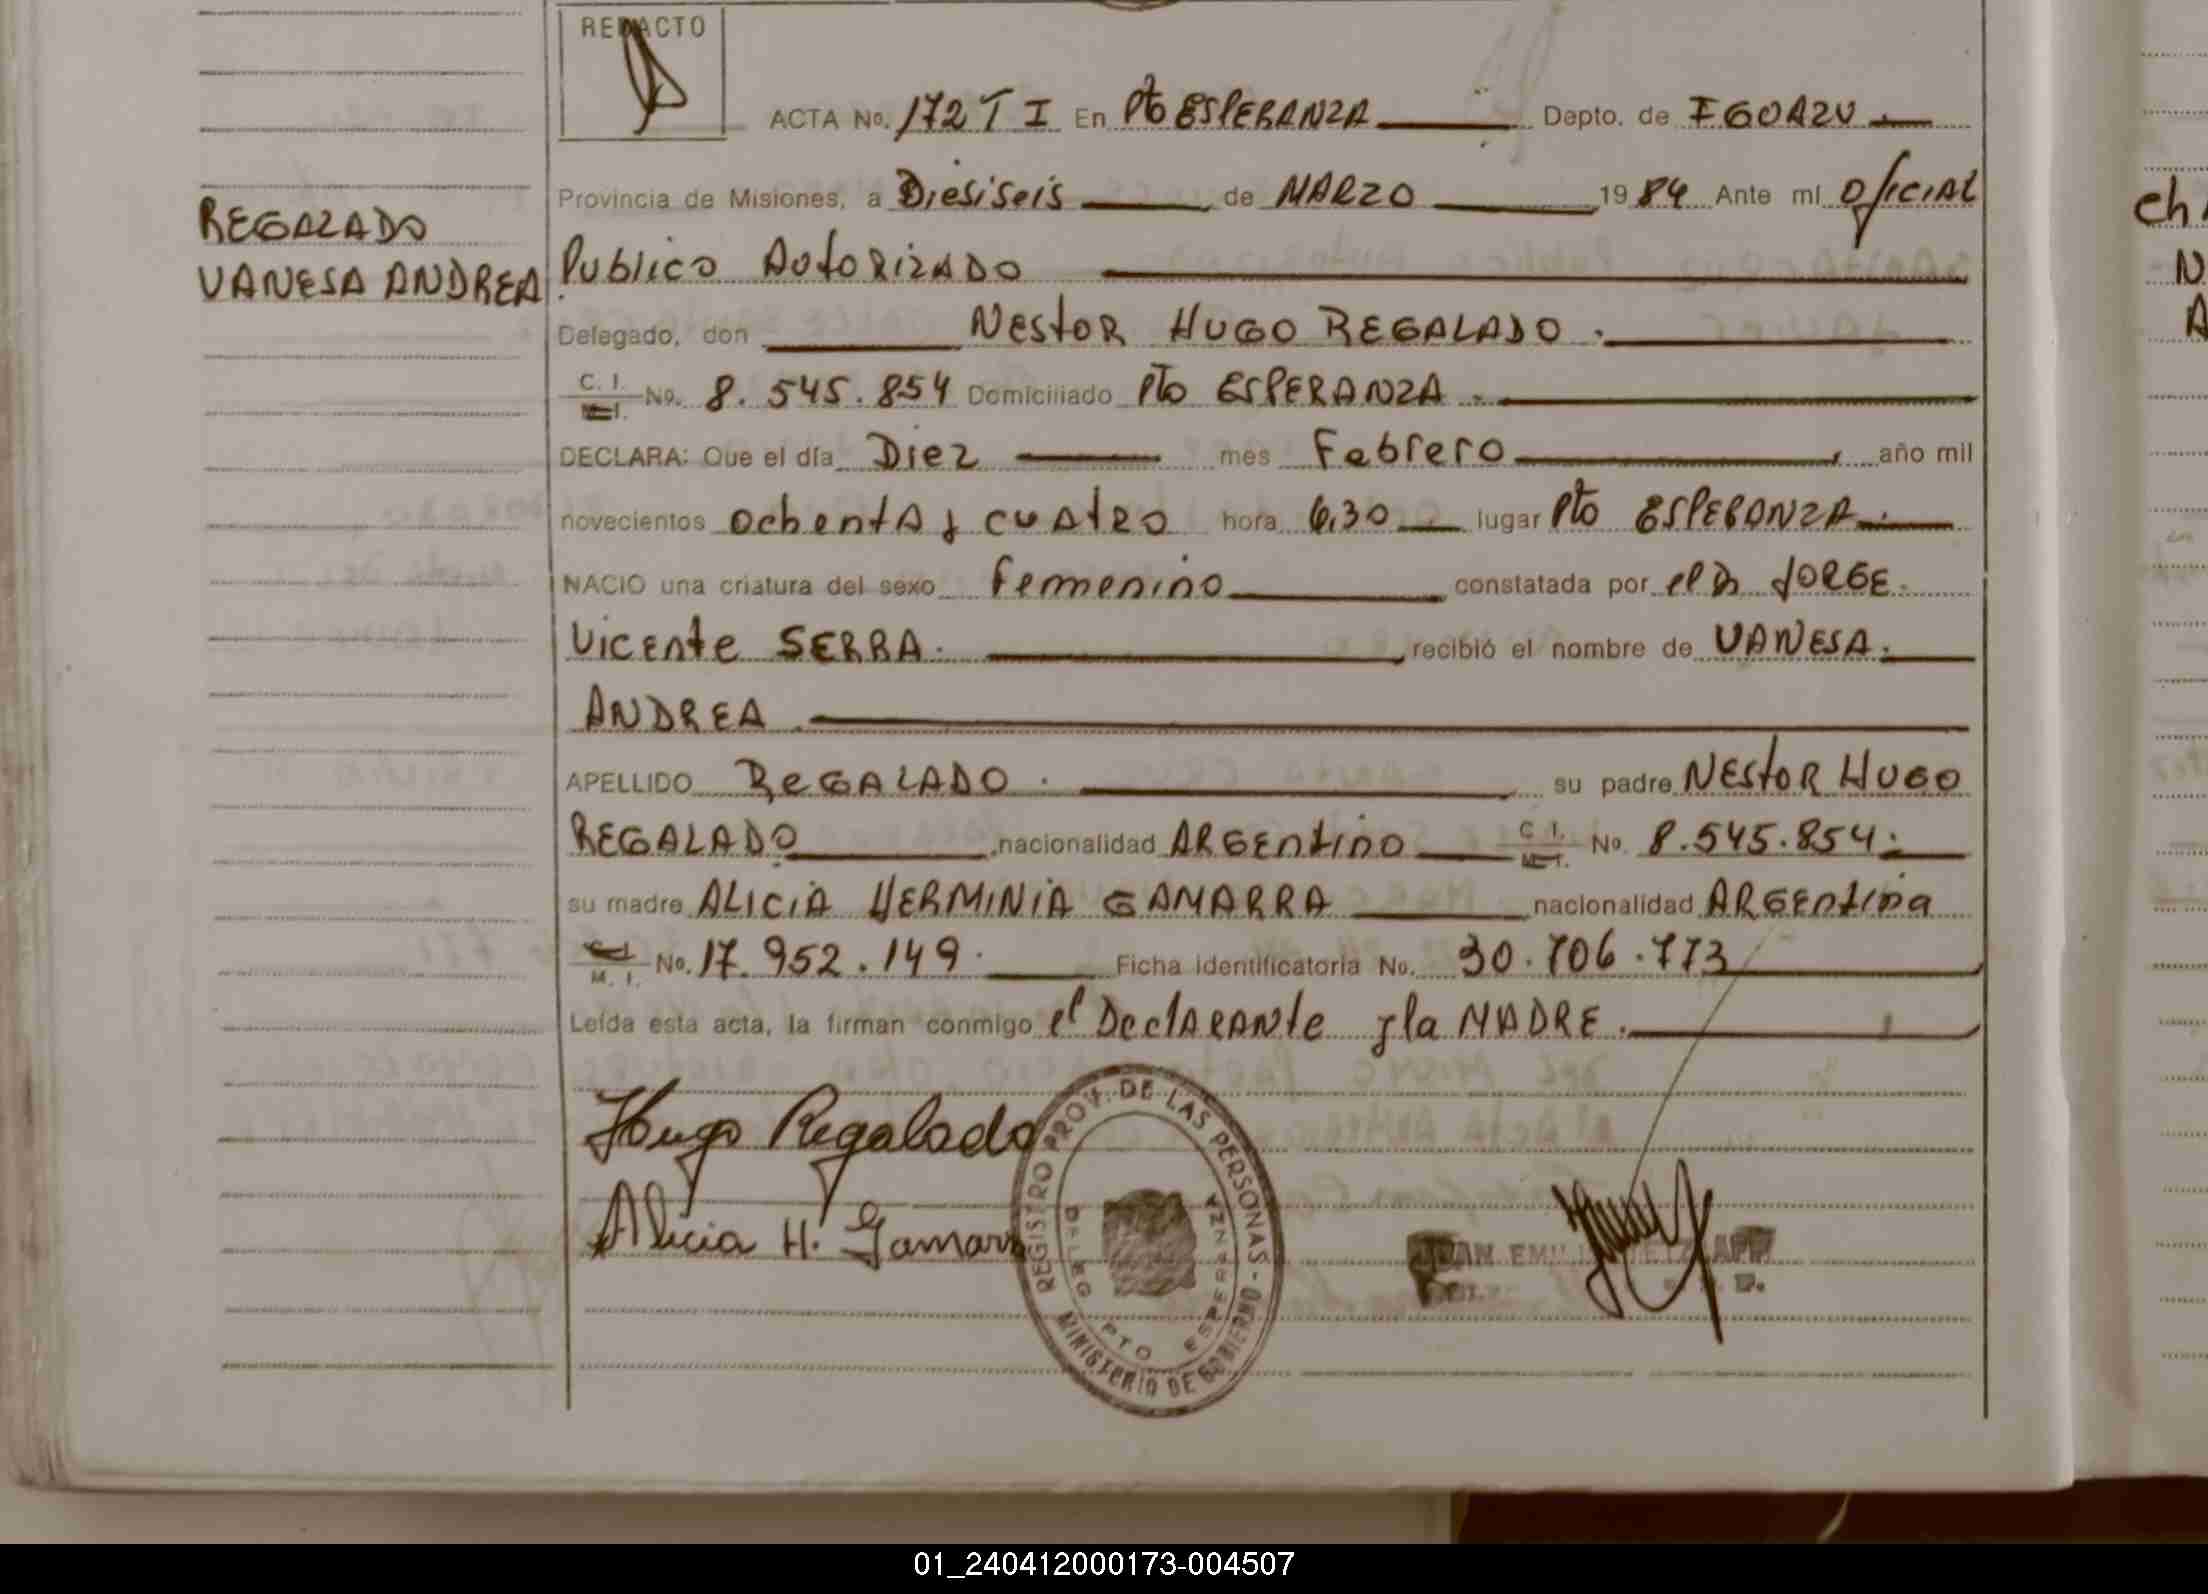 REDACTO
ACTA No. 172 T I En Pto ESPERANZA Depto. de IGUAZU
Provincia de Misiones, a Diesiseis de MARZO 1984 Ante mí Oficial
REGALADO
VANESA ANDREA
Publico Autorizado
Delegado, don Nestor HUGO REGALADO.
C. I. M. I. No. 8.545.854 Domiciliado Pto ESPERANZA.
DECLARA: Que el día Diez mes Febrero, año mil
novecientos ochenta y cuatro hora 6,30 lugar Pto ESPERANZA.
NACIO una criatura del sexo Femenino constatada por el Dr JORGE.
Vicente SERRA. recibió el nombre de VANESA.
ANDREA.
APELLIDO REGALADO. su padre NEstoR HUGO
REGALADO, nacionalidad ARGentino C. I. M. I. No. 8.545.854.
su madre ALICIA HERMINIA GAMARRA nacionalidad ARGentina
C. I. M. I. No. 17.952.149. Ficha identificatoria No. 30.706.773
Leída esta acta, la firman conmigo el DeclARANte y la MADRE.
Hugo Regalado
Alicia H. Gamarra
REGISTRO PROV. DE LAS PERSONAS - MINISTERIO DE GOBIERNO -
DALEG PTO ESPERANZA
JUAN
ch
N
A
01_240412000173-004507